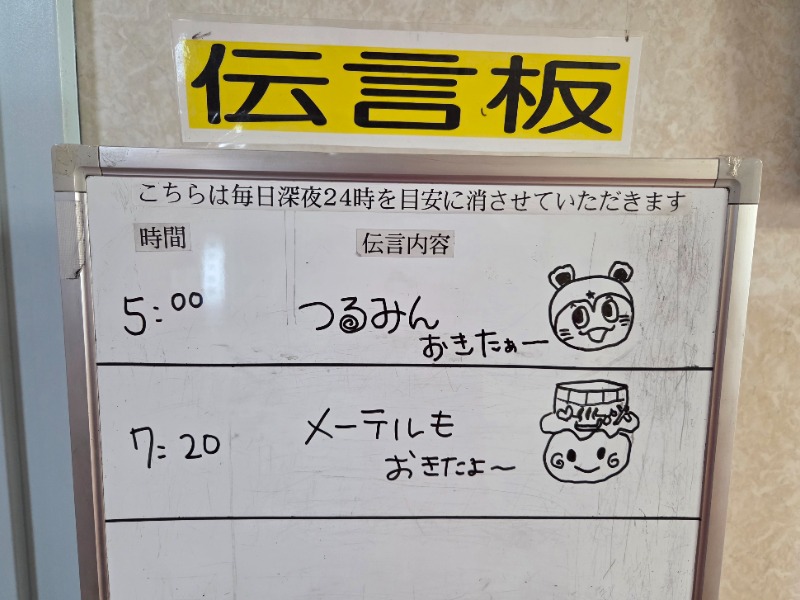 伝言板
こちらは毎日深夜24時を目安に消させていただきます
時間 伝言内容
5:00 つるみん
おきたぁー
7:20 メーテルも
おきたよ～